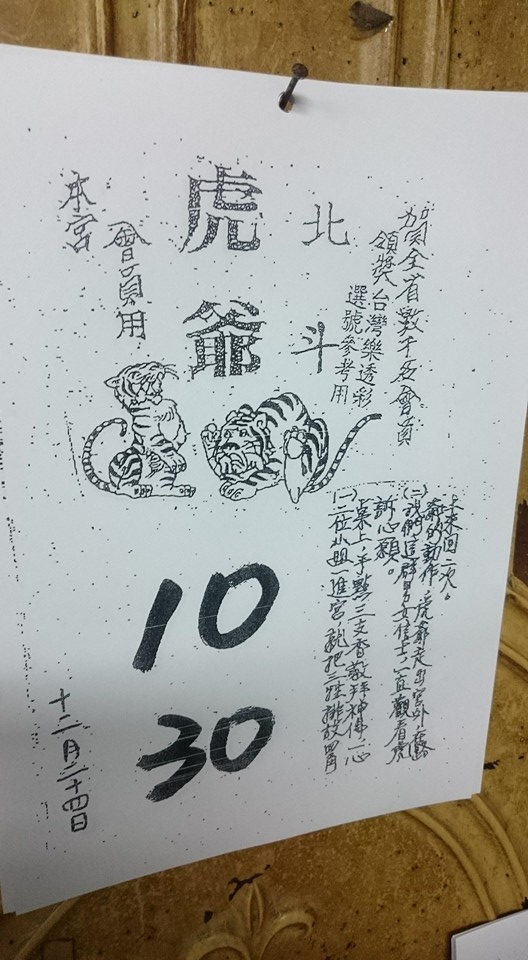 全省數千名會員
領獎台灣樂透彩
選號參考用
北斗
虎爺
本宮
會員用
(一)二位小姐一進宮,就把三牲排放四角
桌上,手點三支香敬拜神佛,一心
訴心願。
(二)我們這群男女信士,一直觀看虎
爺的動作,虎爺走出宮外,在路
上來回二次。
10
30
十二月二十四日